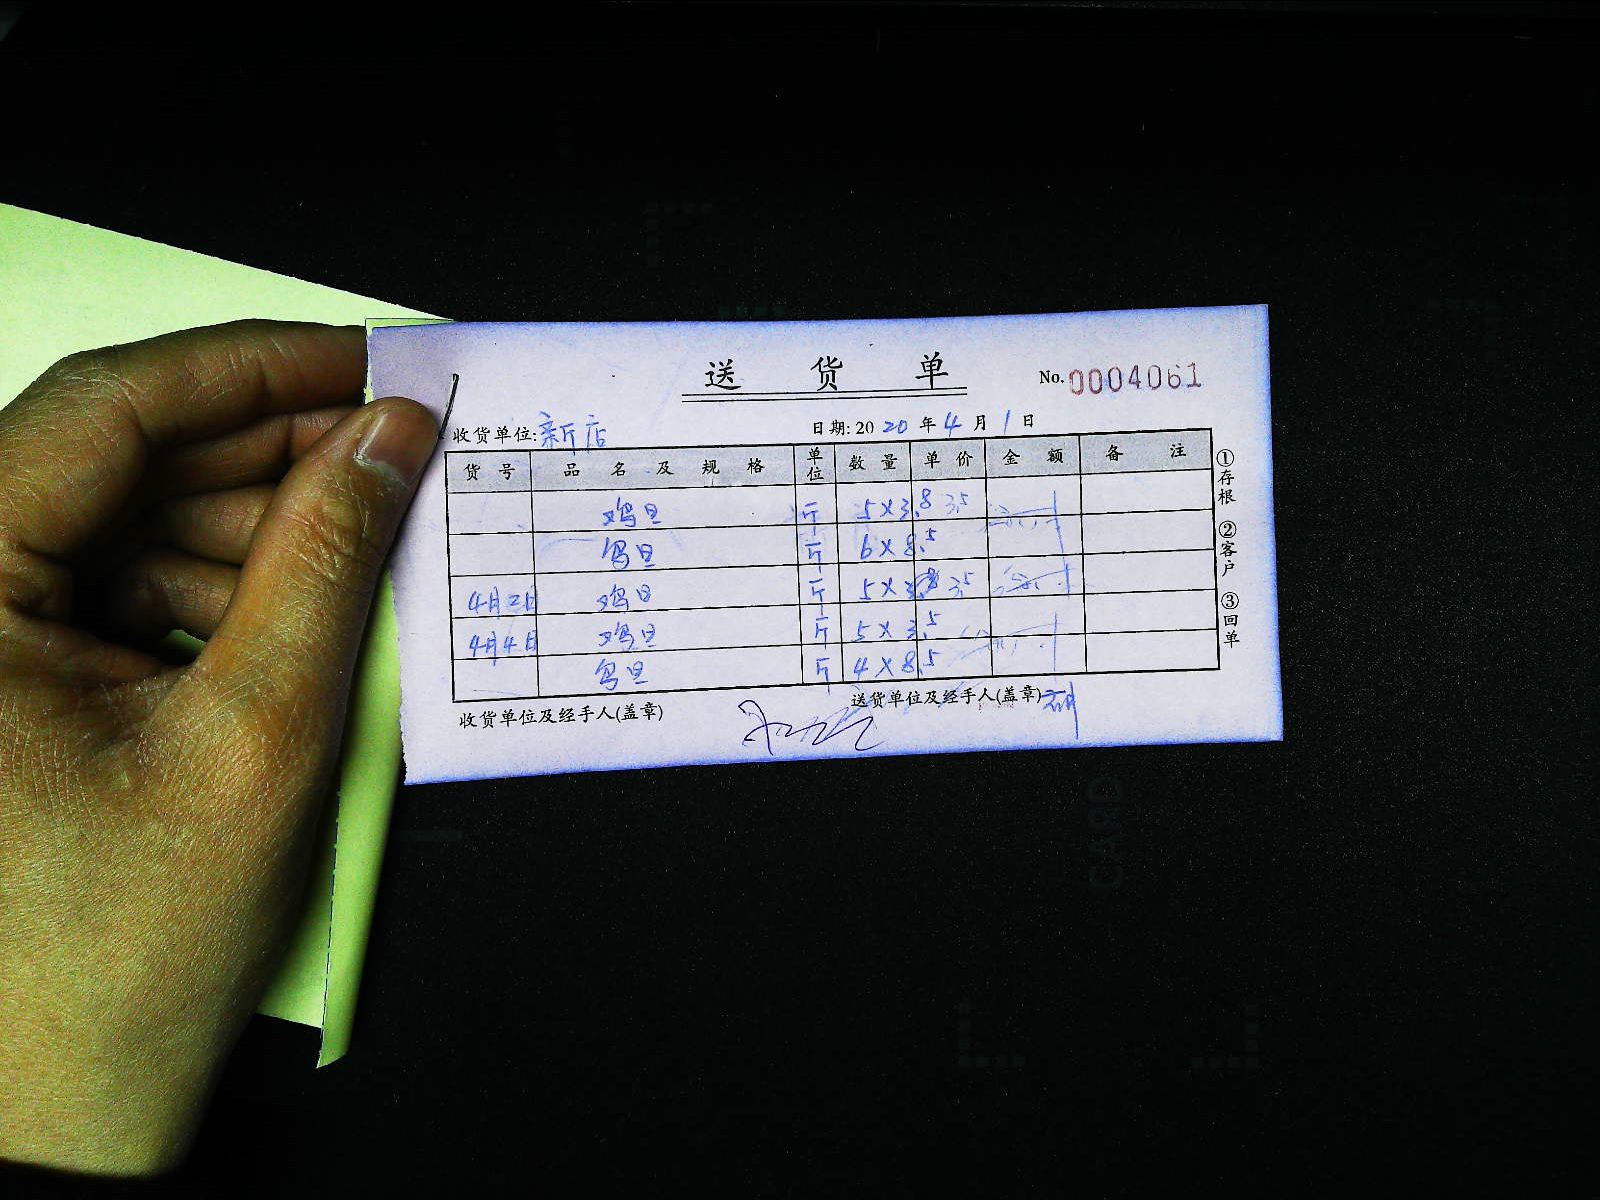 送 货 单
No. 0004061
收货单位: 新店 日期: 2020 年 4 月 1 日
货号 品名及规格 单位 数量 单价 金额 备注
鸡旦 斤 5×3.8 3.5
鸟旦 斤 6×8.5
4月2日 鸡旦 斤 5×3.8 3.5
4月4日 鸡旦 斤 5×3.5
鸟旦 斤 4×8.5
①存根 ②客户 ③回单
收货单位及经手人(盖章) 送货单位及经手人(盖章)
CARD